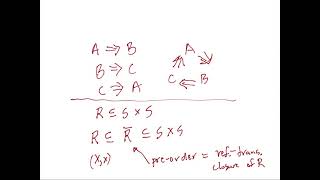 A ⇒ B
B ⇒ C
C ⇒ A
A
C
B
R ⊆ S × S
R ⊆ R̃ ⊆ S × S
(x,x)
pre-order = ref.-trans.
closure of R